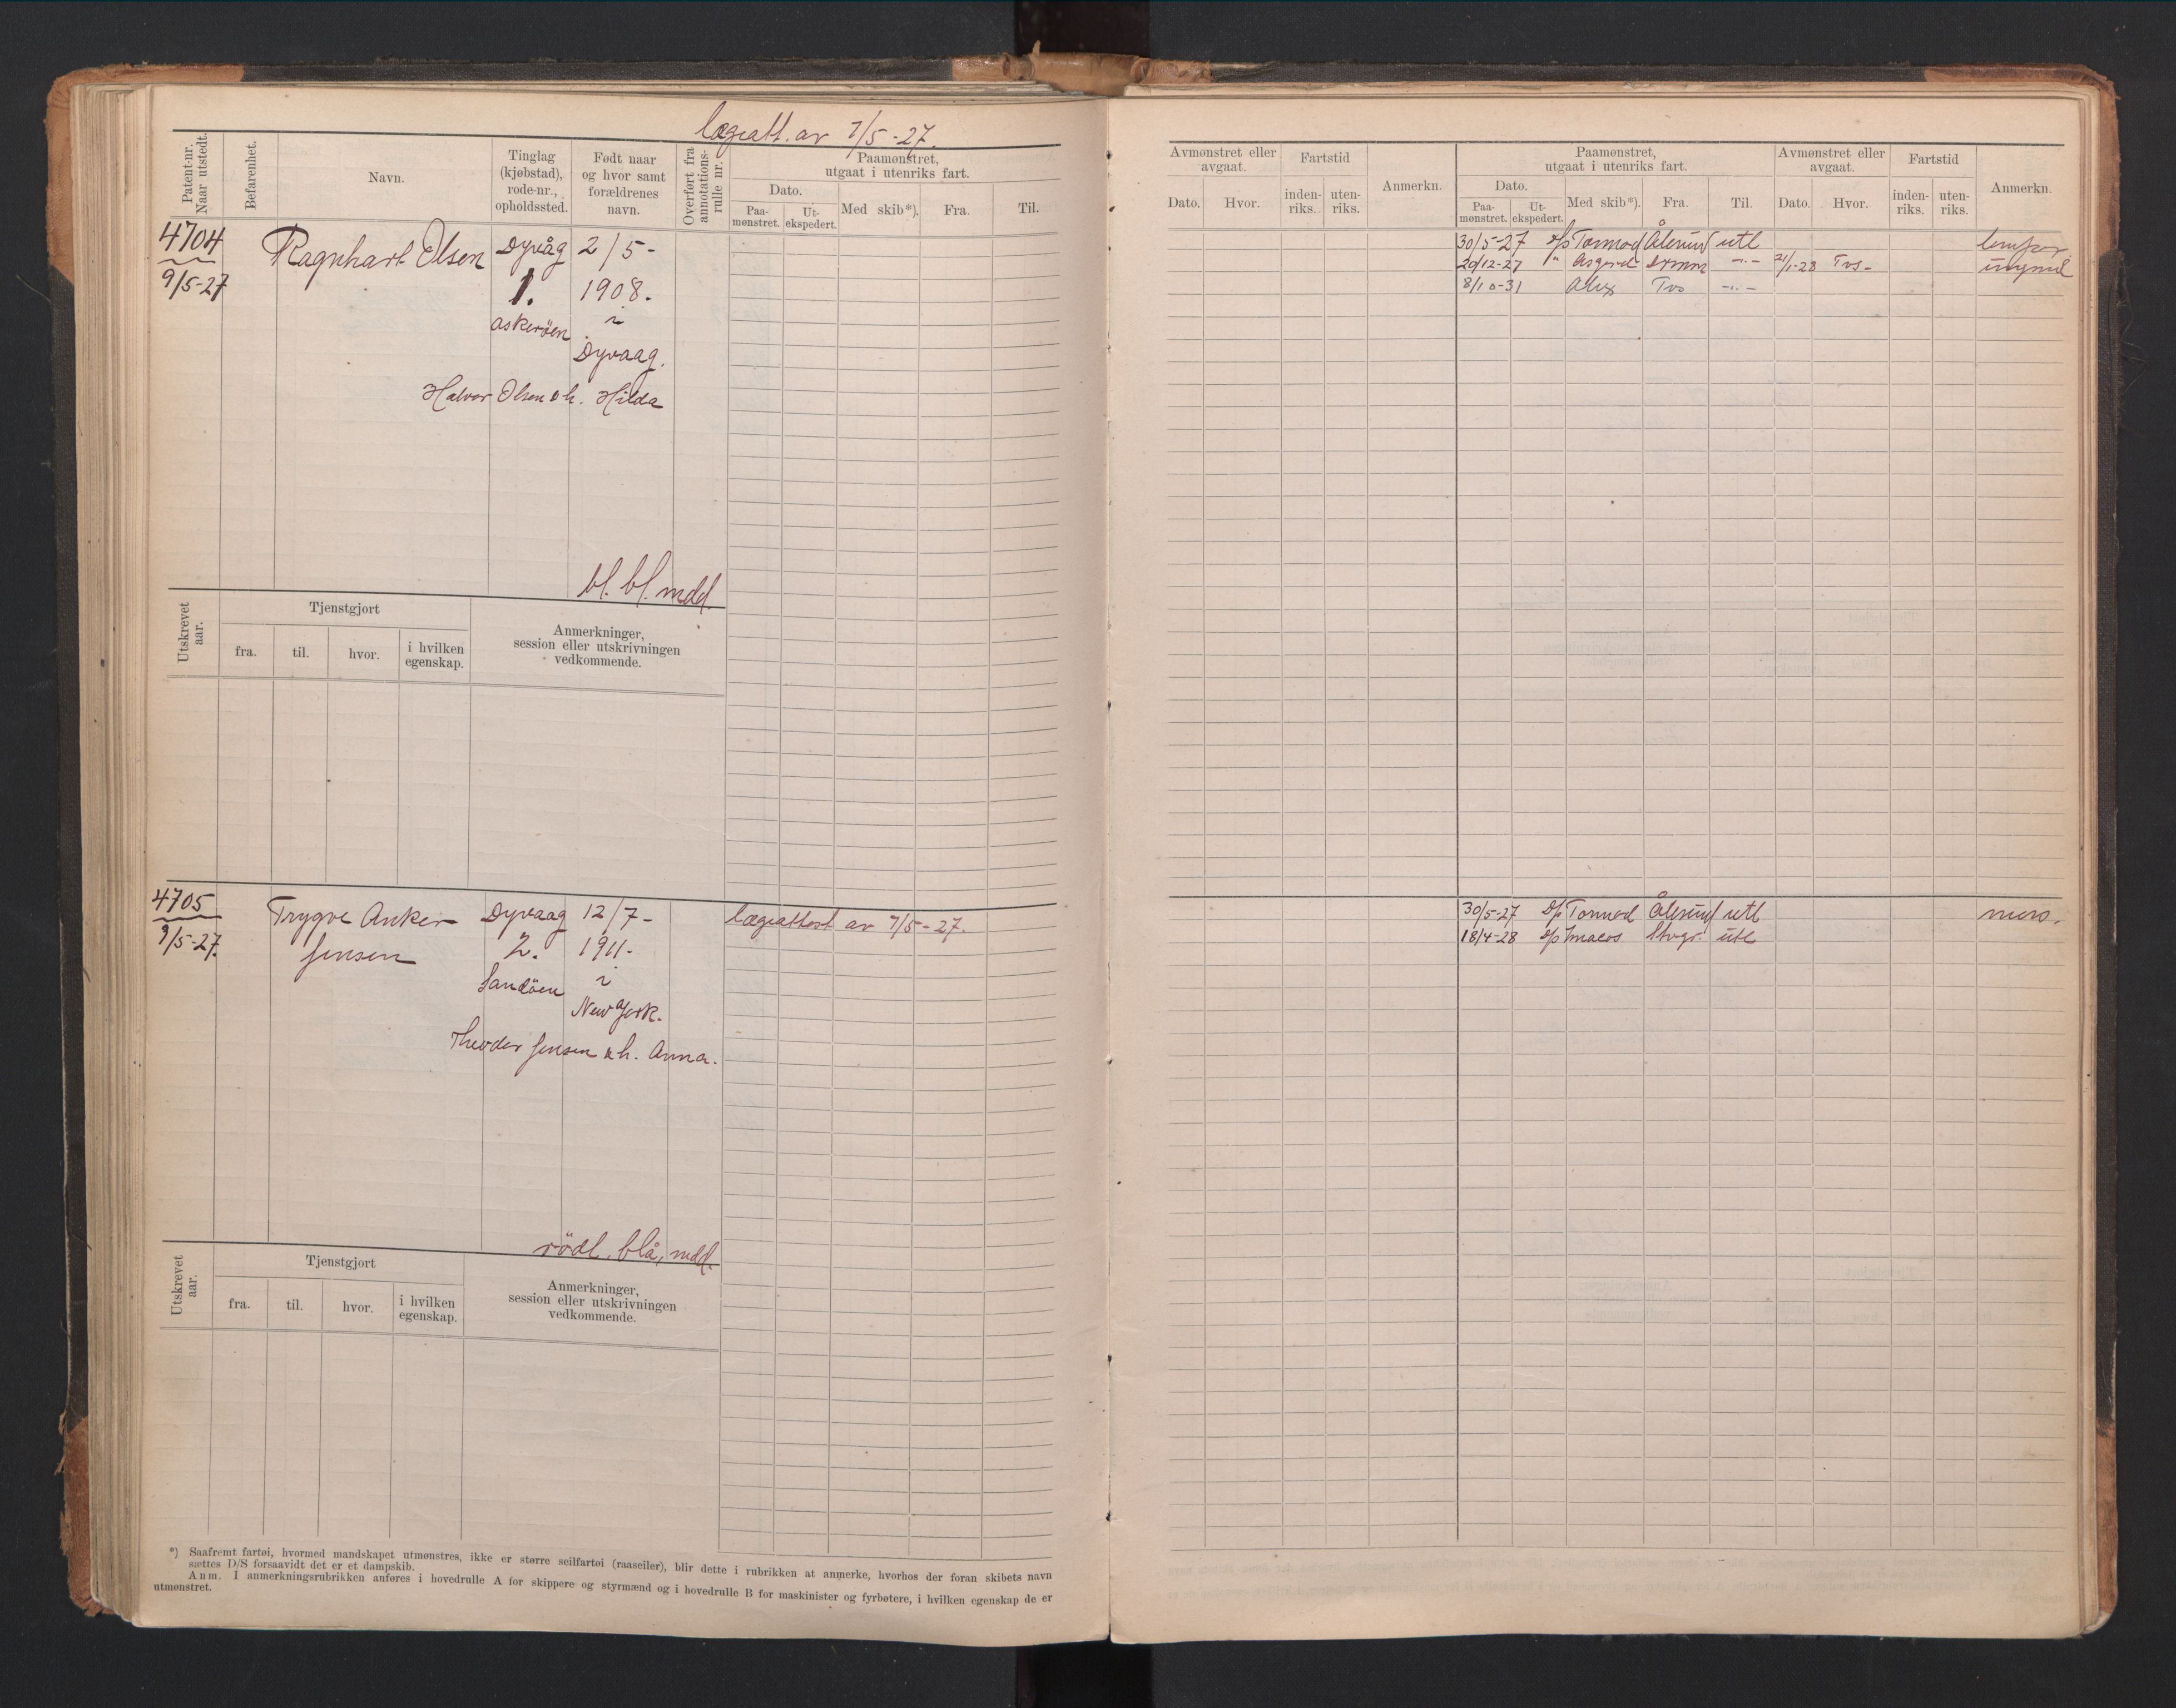 lægeatt. av 7/5-27.
Patent-nr. Naar utstedt.
Befarenhet.
Navn.
Tinglag (kjøbstad), rode-nr., opholdssted.
Født naar og hvor samt forældrenes navn.
Overført fra annotations-rulle nr.
Paamønstret, utgaat i utenriks fart.
Dato.
Paa-mønstret.
Ut-ekspedert.
Med skib*).
Fra.
Til.
4704
9/5-27
Ragnhart Olsen
Dyvåg
1.
Askerøen
2/5-
1908.
i
Dyvaag.
Halvor Olsen & h. Hilda
bl. bl. mdd.
Utskrevet aar.
Tjenstgjort
fra.
til.
hvor.
i hvilken egenskap.
Anmerkninger, session eller utskrivningen vedkommende.
4705
9/5-27.
Trygve Anker
Jensen
Dyvaag
2.
Sandöen
12/7-
1911.
i
New York.
Theodor Jensen & h. Anna.
lægeattest av 7/5-27.
rödl. blå, mdd.
Utskrevet aar.
Tjenstgjort
fra.
til.
hvor.
i hvilken egenskap.
Anmerkninger, session eller utskrivningen vedkommende.
*) Saafremt fartøi, hvormed mandskapet utmønstres, ikke er større seilfartøi (raaseiler), blir dette i rubrikken at anmerke, hvorhos der foran skibets navn
sættes D/S forsaavidt det er et dampskib.
Anm. I anmerkningsrubrikken anføres i hovedrulle A for skippere og styrmænd og i hovedrulle B for maskinister og fyrbøtere, i hvilken egenskap de er
utmønstret.
Avmønstret eller avgaat.
Dato.
Hvor.
Fartstid
inden-riks.
uten-riks.
Anmerkn.
Paamønstret, utgaat i utenriks fart.
Dato.
Paa-mønstret.
Ut-ekspedert.
Med skib*).
Fra.
Til.
Avmønstret eller avgaat.
Dato.
Hvor.
Fartstid
inden-riks.
uten-riks.
Anmerkn.
30/5-27 D/s Tormod Ålesund utl
20/12-27 " Asgerd -"- 21/1-28 Tvs-
8/10-31 Alex Tvs -"-
30/5-27 D/s Tormod Ålesund utl
18/4-28 D/s Stvgr. utl